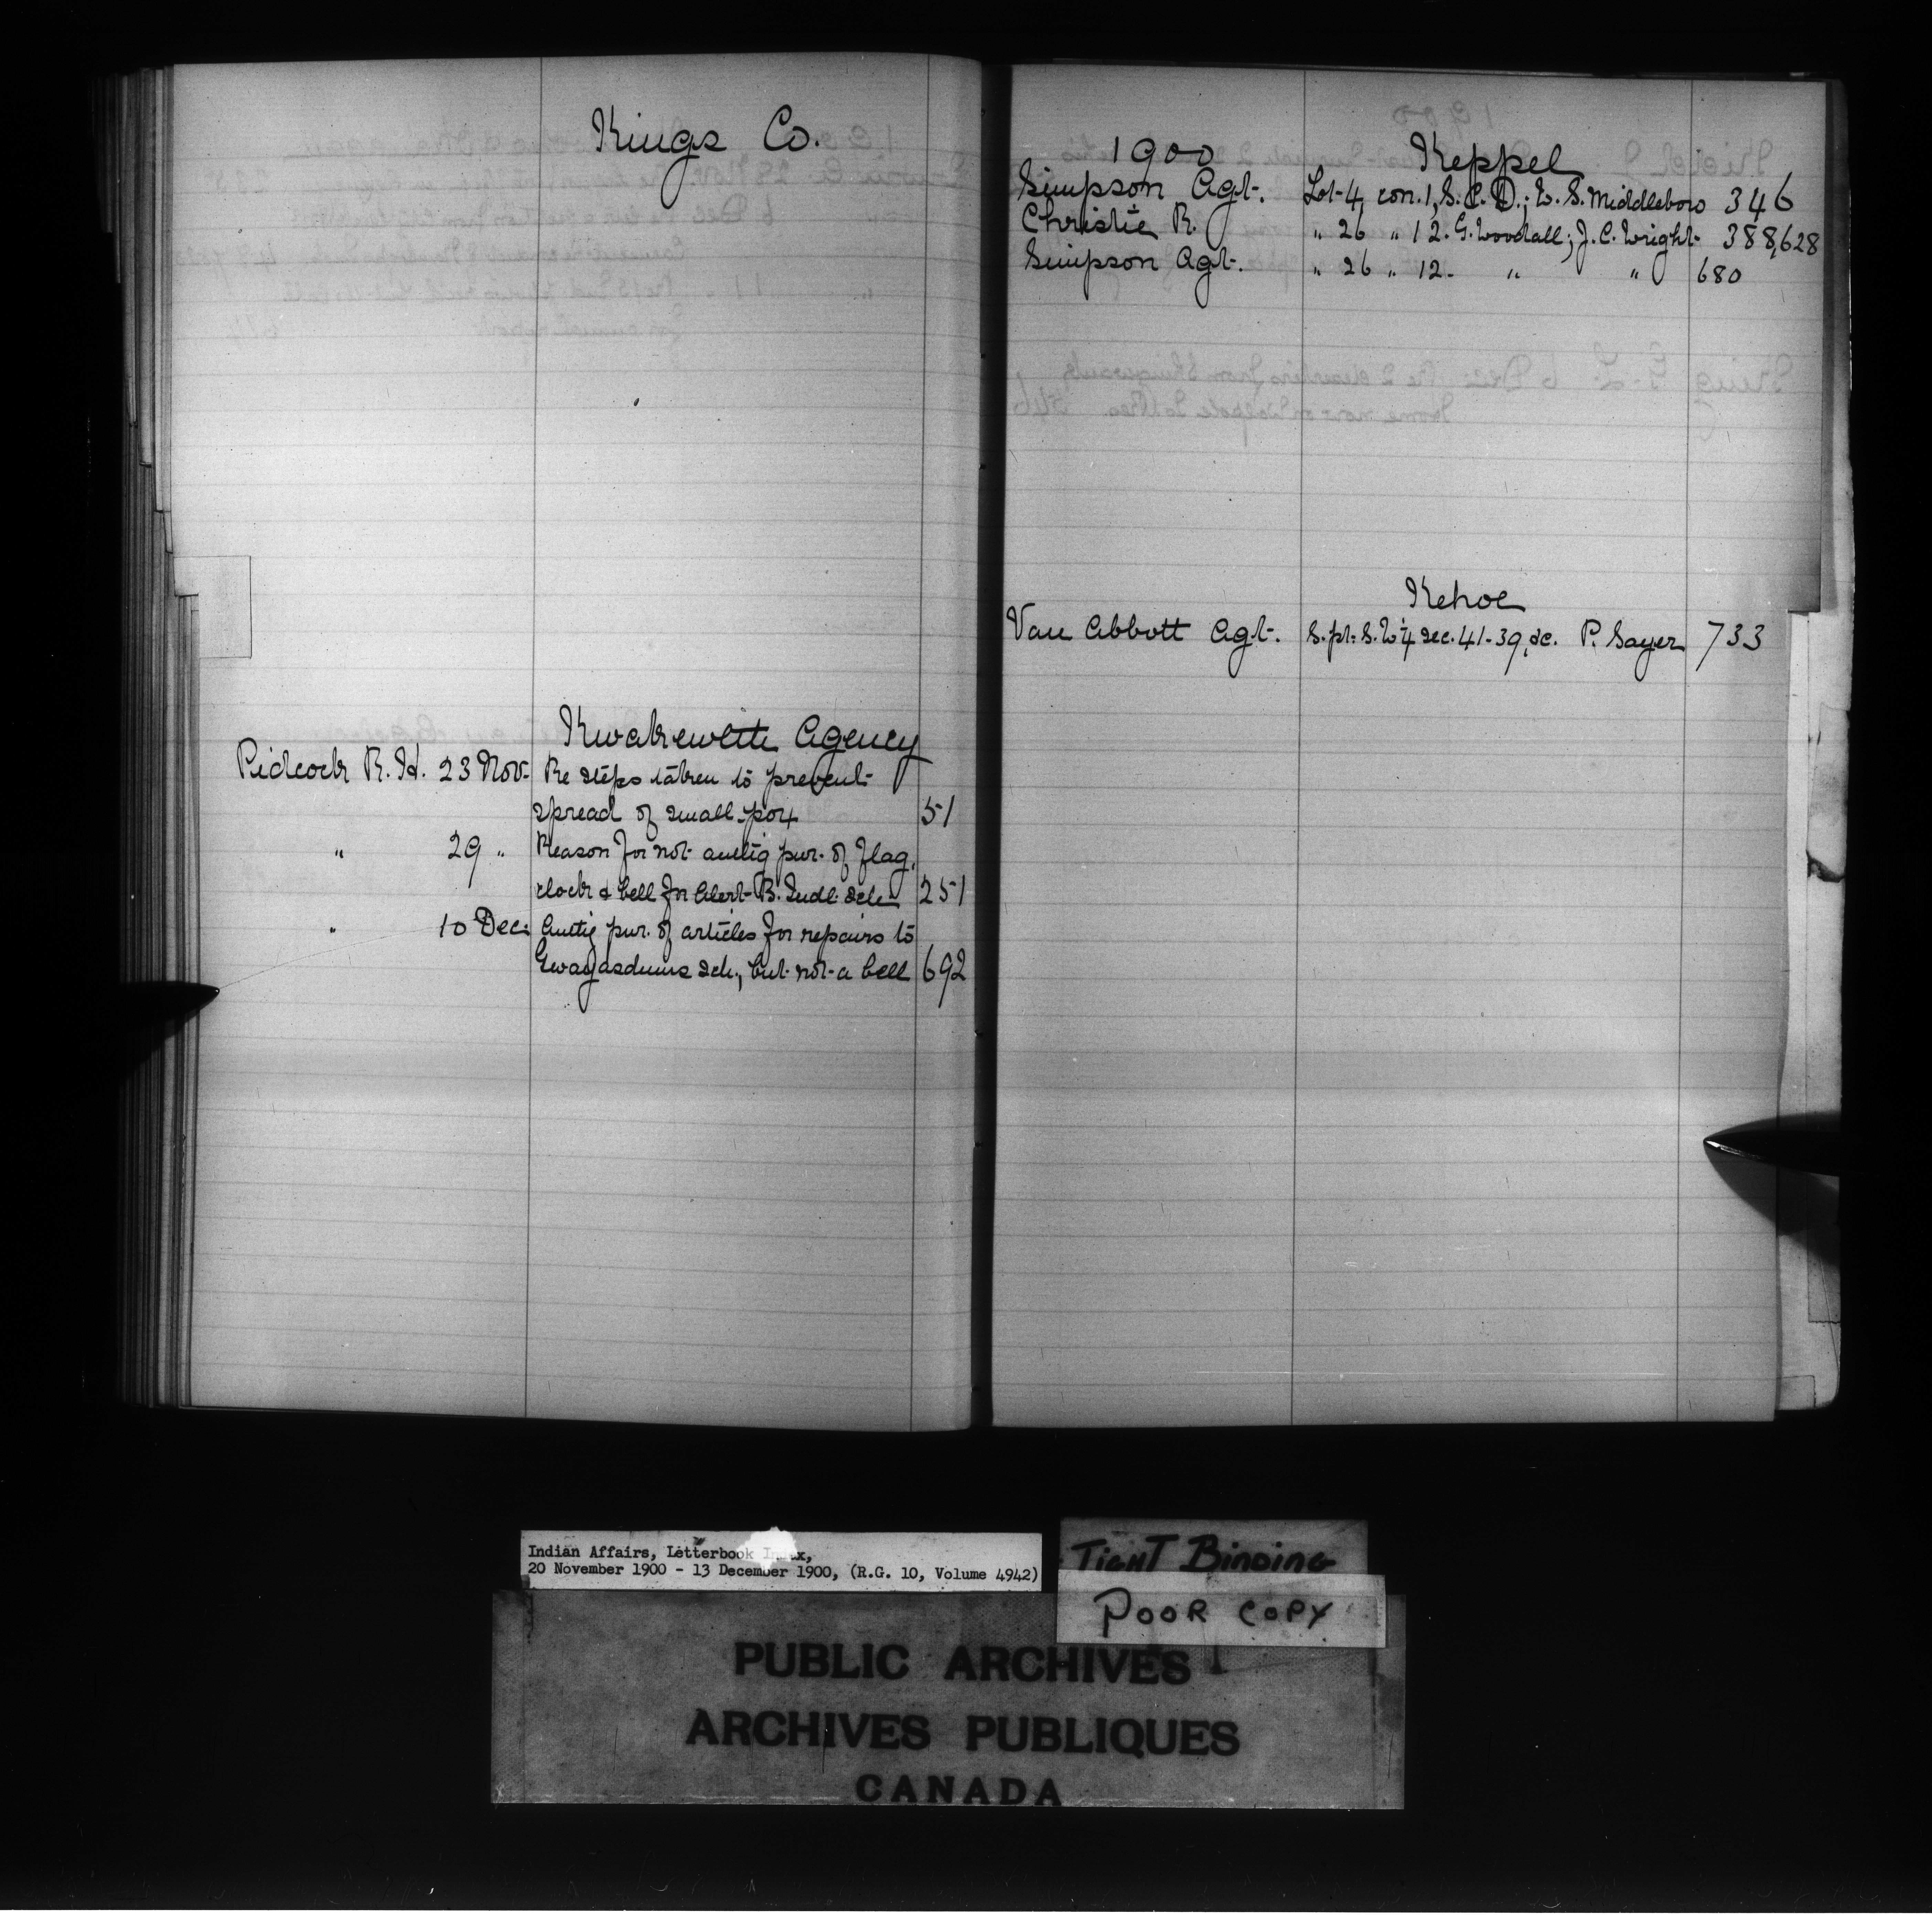 Kings Co.
Kwakewlth Agency
Pidcock R. H. 23 Nov. Re steps taken to prevent
spread of small-pox 51
" 29 " Reason for not authg pur. of flag,
clock & bell for Alert B. Indl. sch. 251
" 10 Dec. Authg pur. of articles for repairs to
Gwayasdums sch., but not a bell 692
1900 Keppel
Simpson Agt. Lot 4, con. 1, S. C. D.; W. S. Middleboro 346
Christie R. " 26 " 12. G. Woodall; J. C. Wright 388,628
Simpson Agt. " 26 " 12. " " 680
Kehoe
Van Abbott Agt. S. pt. S. W ¼ sec. 41-39, &c. P. Sayer 733
Indian Affairs, Letterbook Index,
20 November 1900 - 13 December 1900, (R.G. 10, Volume 4942)
TIGHT BINDING
POOR COPY
PUBLIC ARCHIVES
ARCHIVES PUBLIQUES
CANADA